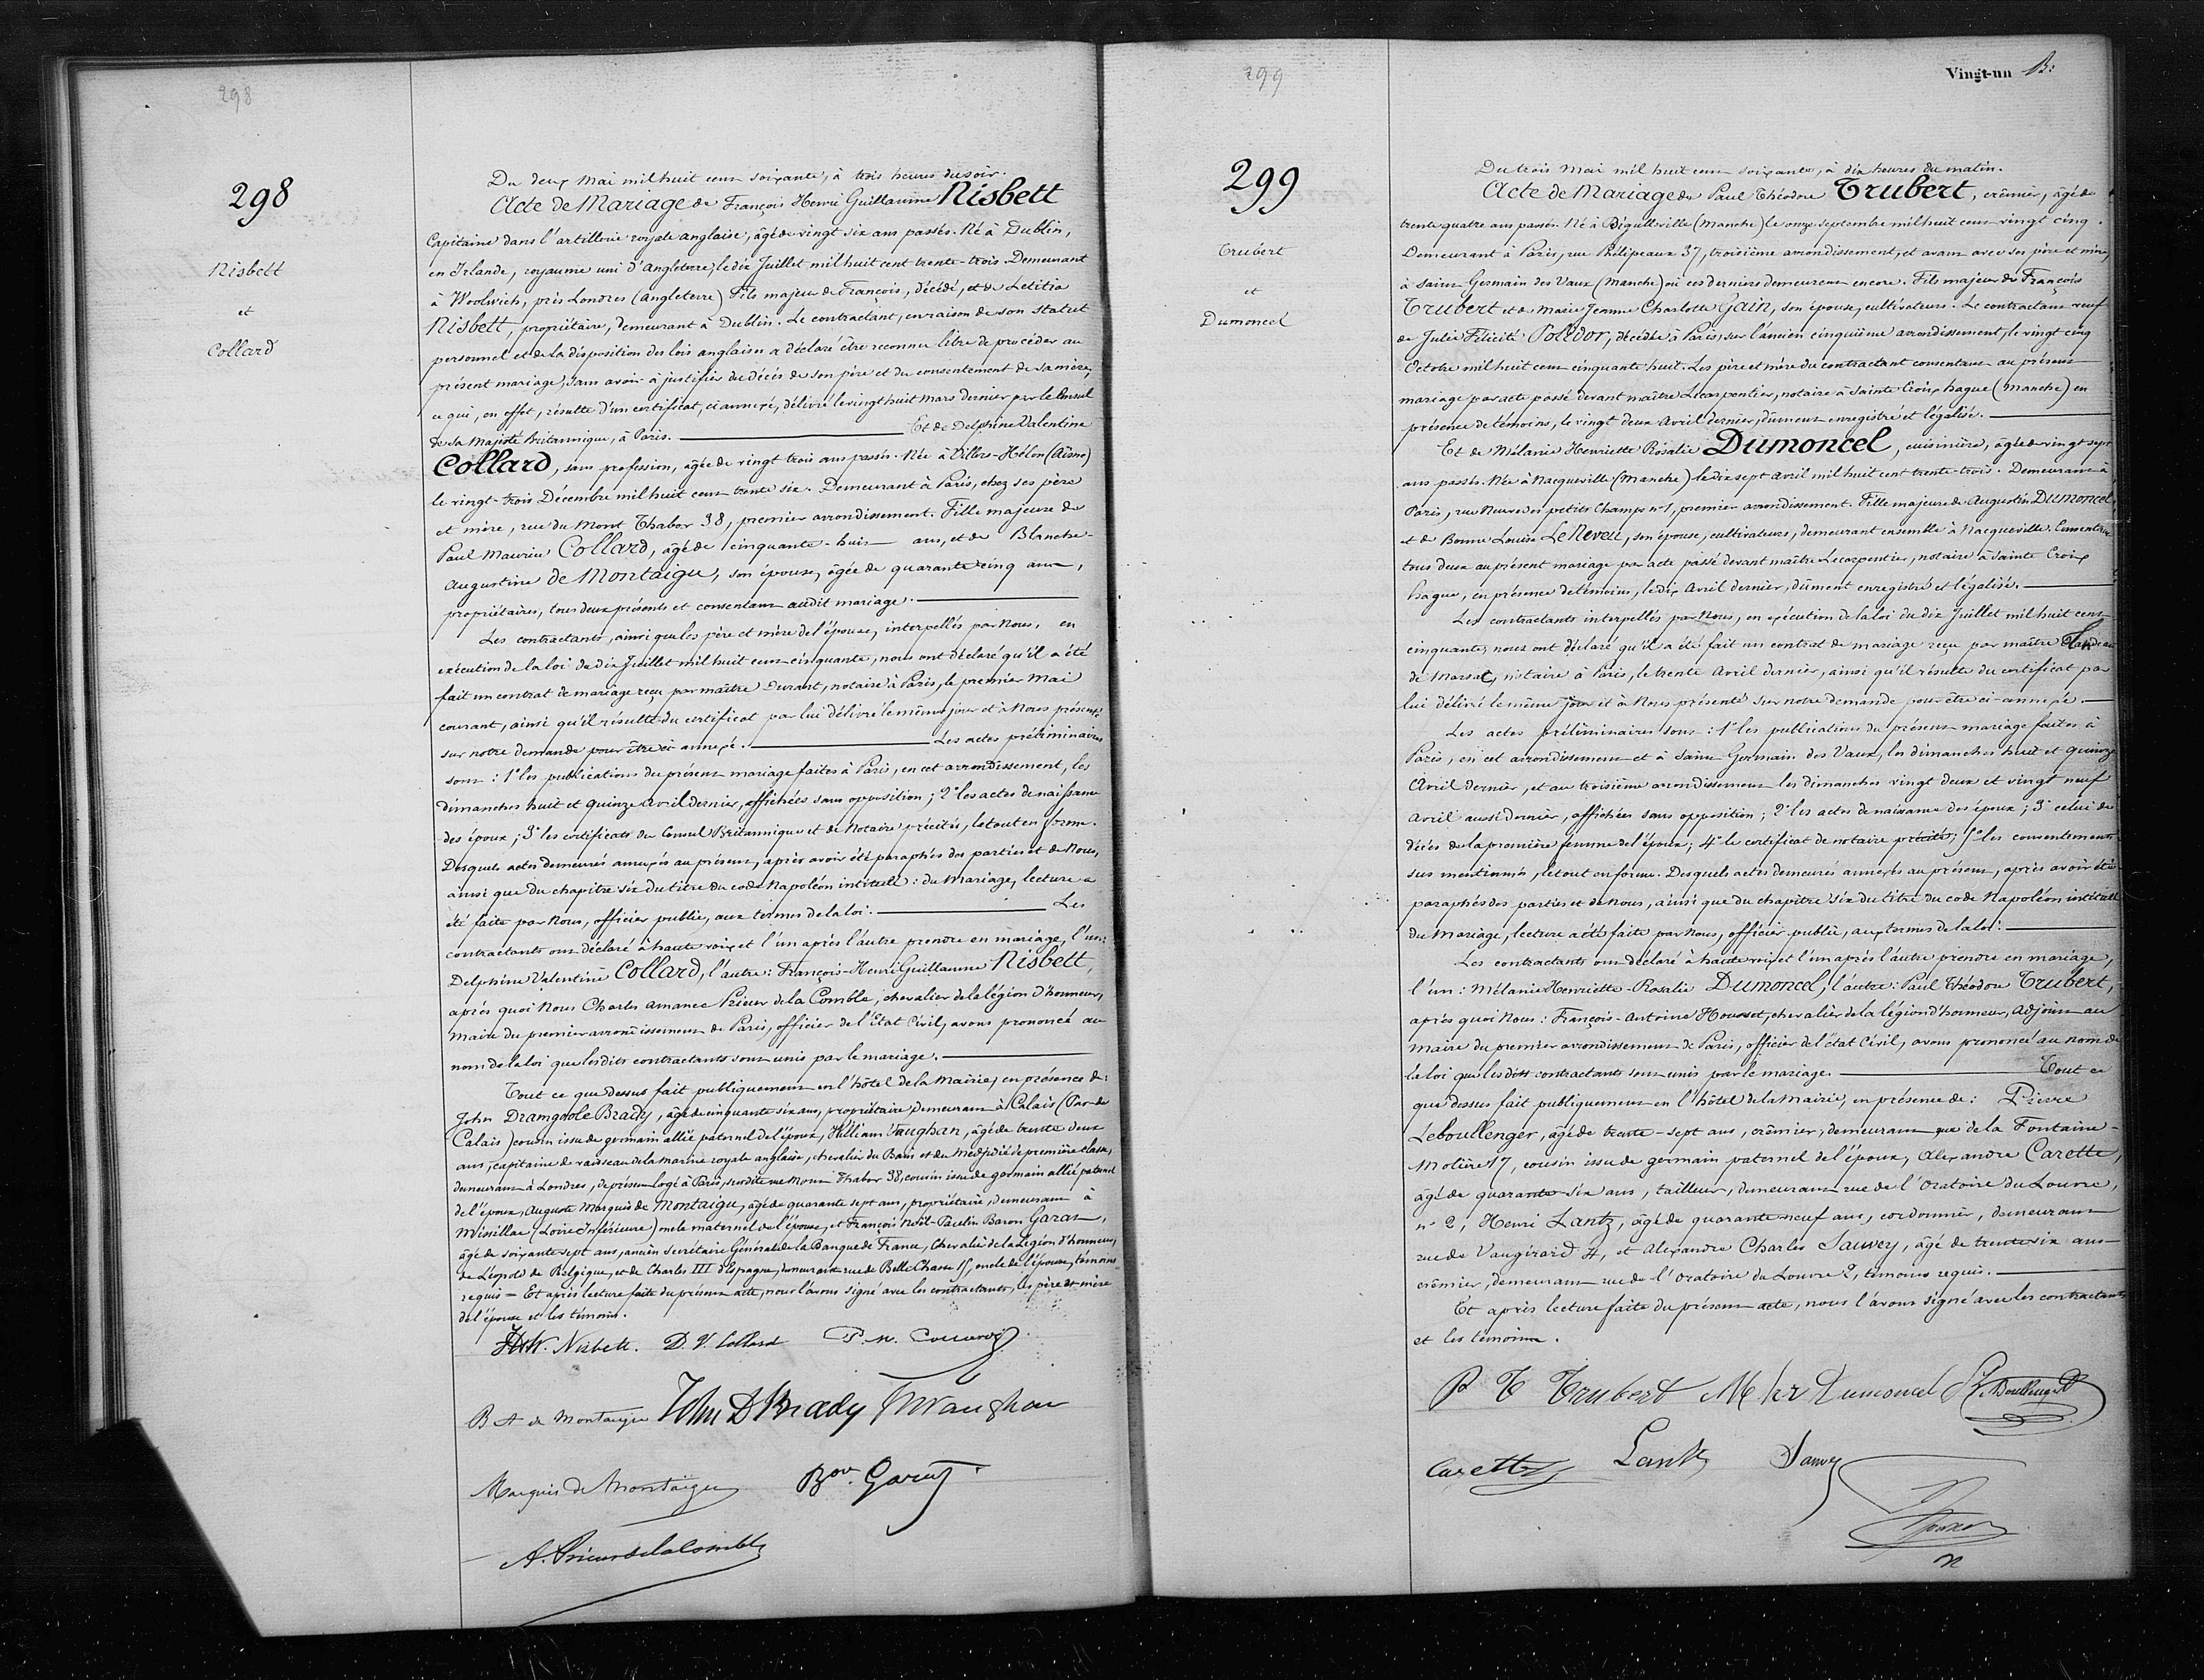 298
298
Nisbett
et
Collard
Du deux Mai mil huit cent soixante, à trois heures du soir.
Acte de Mariage de François Henri Guillaume Nisbett
Capitaine dans l'artillerie royale anglaise, âgé de vingt six ans passés. Né à Dublin,
en Irlande, royaume uni d'Angleterre, le dix Juillet mil huit cent trente-trois. Demeurant
à Woolwich, près Londres (Angleterre) Fils majeur de François, décédé, et de Letitia
Nisbett, propriétaire, demeurant à Dublin. Le contractant, en raison de son statut
personnel et de la disposition des lois anglaises a déclaré être reconnu libre de procéder au
présent mariage, sans avoir à justifier du décès de son père et du consentement de sa mère,
ce qui, en effet, résulte d'un certificat, ci annexé, délivré le vingt huit Mars dernier par le Consul
de sa Majesté Britannique, à Paris. Et de Delphine Valentine
Collard, sans profession, âgée de vingt trois ans passés. Née à Villers-Hélon (Aisne)
le vingt-trois Décembre mil huit cent trente six. Demeurant à Paris, chez ses père
et mère, rue du Mont Thabor 38, premier arrondissement. Fille majeure de
Paul Maurice Collard, âgé de cinquante-huit ans, et de Blanche-
Augustine de Montaigu, son épouse, âgée de quarante cinq ans,
propriétaires, tous deux présents et consentant audit mariage.
Les contractants, ainsi que les père et mère de l'épouse, interpellés par Nous, en
exécution de la loi du dix Juillet mil huit cent cinquante, nous ont déclaré qu'il a été
fait un contrat de mariage reçu par maître Durant, notaire à Paris, le premier Mai
courant, ainsi qu'il résulte du certificat par lui délivré le même jour et à Nous présenté
sur notre demande pour être ci annexé. Les actes préliminaires
sont : 1° les publications du présent mariage faites à Paris, en cet arrondissement, les
dimanches huit et quinze avril dernier, affichées sans opposition ; 2° les actes de naissance
des époux ; 3° les certificats du Consul Britannique et de Notaire précités, le tout en forme.
Desquels actes demeurés annexés au présent, après avoir été paraphés des parties et de Nous,
ainsi que du chapitre six du titre du code Napoléon intitulé : du Mariage, lecture a
été faite par Nous, officier public, aux termes de la loi. Les
contractants ont déclaré à haute voix et l'un après l'autre prendre en mariage, l'un :
Delphine Valentine Collard, l'autre : François-Henri Guillaume Nisbett,
après quoi Nous Charles Amance Prieur de la Comble, chevalier de la légion d'honneur,
Maire du premier arrondissement de Paris, officier de l'Etat Civil, avons prononcé au
nom de la loi que lesdits contractants sont unis par le mariage.
Tout ce que dessus fait publiquement en l'hôtel de la Mairie, en présence de :
John Dramgoole Brady, âgé de cinquante six ans, propriétaire, demeurant à Calais (Pas-de
Calais) cousin issu de germain allié paternel de l'époux, William Vaughan, âgé de trente deux
ans, capitaine de vaisseau de la marine royale anglaise, chevalier du Bain et du Medjidié de première classe,
demeurant à Londres, de présent logé à Paris, susdite rue Mont Thabor 38, cousin issu de germain allié paternel
de l'époux, Auguste Marquis de Montaigu, âgé de quarante sept ans, propriétaire, demeurant à
Missillac (Loire Inférieure) oncle maternel de l'épouse, et François Noël-Paulin Baron Garat,
âgé de soixante sept ans, ancien Secrétaire Général de la Banque de France, Chevalier de la Légion d'honneur,
de Léopold de Belgique, et de Charles III d'Espagne, demeurant rue de Belle Chasse 15, oncle de l'épouse, témoins
requis = Et après lecture faite du présent acte, nous l'avons signé avec les contractants, les père et mère
de l'épouse et les témoins.
Nisbett. D. V. Collard P. M. Collard
B A de Montaigu John D Brady Vaughan
Marquis de Montaigu Bon. Garat
A. Prieur de la Comble
299
Vingt-un
299
Trubert
et
Dumoncel
Du trois Mai mil huit cent soixante, à dix heures du matin.
Acte de Mariage de Paul Théodore Trubert, crêmier, âgé de
trente quatre ans passés. Né à Digulleville (Manche) le onze septembre mil huit cent vingt cinq.
Demeurant à Paris, rue Phélipeaux 37, troisième arrondissement, et avant avec ses père et mère,
à Saint Germain des Vaux (Manche) où ces derniers demeurent encore. Fils majeur de François
Trubert et de Marie Jeanne Charlotte Gain, son épouse, cultivateurs. Le contractant veuf
de Julie Félicité Polidor, décédée à Paris, sur l'ancien cinquième arrondissement, le vingt cinq
Octobre mil huit cent cinquante huit. Les père et mère du contractant consentant au présent
mariage par acte passé devant maître Lecarpentier, notaire à Sainte Croix hague (Manche) en
présence de témoins, le vingt deux Avril dernier, dûment enregistré et légalisé.
Et de Mélanie Henriette Rosalie Dumoncel, cuisinière, âgée de vingt sept
ans passés. Née à Nacqueville (Manche) le dix sept Avril mil huit cent trente-trois. Demeurant à
Paris, rue Neuve des petits Champs n° 1, premier arrondissement. Fille majeure de Augustin Dumoncel,
et de Bonne Louise Le Neveu, son épouse, cultivateurs, demeurant ensemble à Nacqueville. Consentant
tous deux au présent mariage par acte passé devant maître Lecarpentier, notaire à Sainte Croix
hague, en présence de témoins, le dix Avril dernier, dûment enregistré et légalisé.
Les contractants interpellés par Nous, en exécution de la loi du dix Juillet mil huit cent
cinquante, nous ont déclaré qu'il a été fait un contrat de mariage reçu par maître
de Marsat, notaire à Paris, le trente Avril dernier, ainsi qu'il résulte du certificat par
lui délivré le même jour et à Nous présenté sur notre demande pour être ci-annexé.
Les actes préliminaires sont : 1° les publications du présent mariage faites à
Paris, en cet arrondissement et à Saint Germain des Vaux, les dimanches huit et quinze
Avril dernier, et au troisième arrondissement les dimanches vingt deux et vingt neuf
avril aussi dernier, affichées sans opposition ; 2° les actes de naissance des époux ; 3° celui de
décès de la première femme de l'époux ; 4° le certificat de notaire précité ; 5° les consentements
sus mentionnés, le tout en forme. Desquels actes demeurés annexés au présent, après avoir été
paraphés des parties et de Nous, ainsi que du chapitre six du titre du code Napoléon intitulé
du Mariage, lecture a été faite par Nous, officier public, aux termes de la loi.
Les contractants ont déclaré à haute voix et l'un après l'autre prendre en mariage,
l'un : Mélanie Henriette-Rosalie Dumoncel, l'autre : Paul Théodore Trubert,
après quoi Nous : François-Antoine Housset, chevalier de la légion d'honneur, adjoint au
Maire du premier arrondissement de Paris, officier de l'état Civil, avons prononcé au nom de
la loi que lesdits contractants sont unis par le mariage. Tout ce
que dessus fait publiquement en l'hôtel de la Mairie, en présence de : Pierre
Leboullenger, âgé de trente-sept ans, crêmier, demeurant rue de la Fontaine-
Molière 17, cousin issu de germain paternel de l'époux, Alexandre Carette,
âgé de quarante-six ans, tailleur, demeurant rue de l'Oratoire du Louvre,
n° 2, Henri Lantz, âgé de quarante-neuf ans, cordonnier, demeurant
rue de Vaugirard 4, et Alexandre Charles Sauvey, âgé de trente six ans
crêmier, demeurant rue de l'Oratoire du Louvre 2, témoins requis.
Et après lecture faite du présent acte, nous l'avons signé avec les contractants
et les témoins.
P T Trubert M h r Dumoncel Leboullenger
Carette Lantz Sauvey